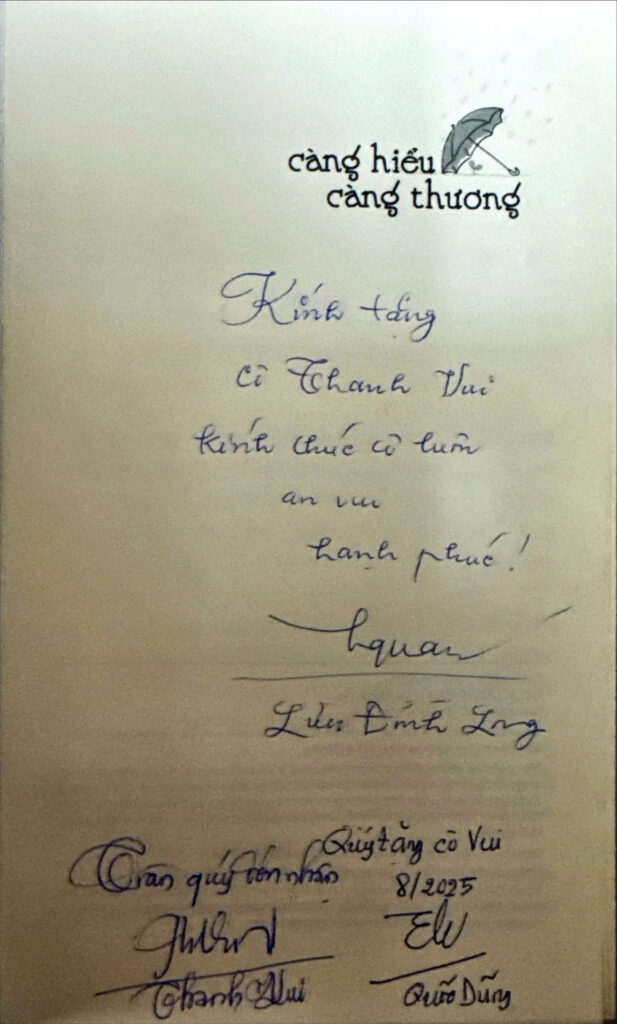 càng hiểu
càng thương
Kính tặng
cô Thanh Vui
kính chúc cô luôn
an vui
hạnh phúc!
Lưu Đình Long
Quý tặng cô Vui
Trân quý đón nhận
8/2025
Thanh Vui
Quốc Dũng